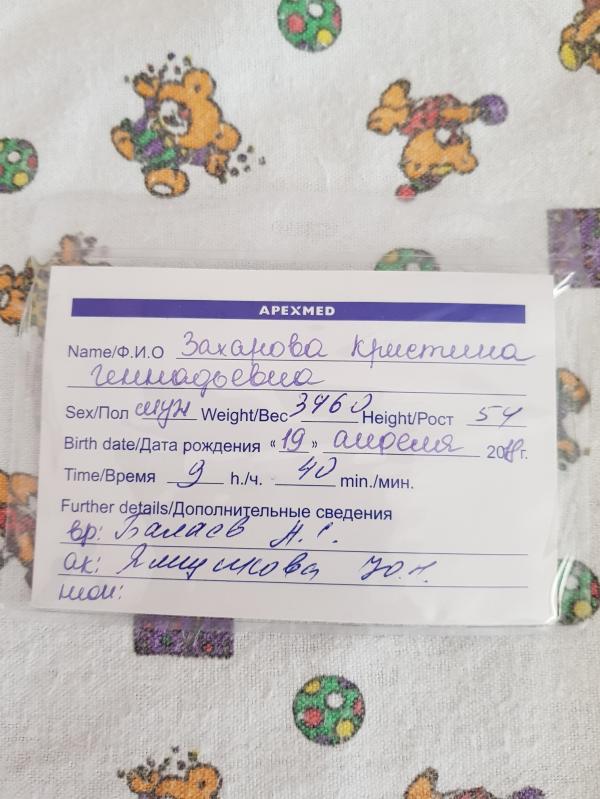 APEXMED
Name/Ф.И.О Захарова Кристина
Геннадьевна
Sex/Пол муж Weight/Вес 3460 Height/Рост 54
Birth date/Дата рождения «19» апреля 2018г.
Time/Время 9 h./ч. 40 min./мин.
Further details/Дополнительные сведения
вр: Балаев
ак: Ямщикова Ю.Н.